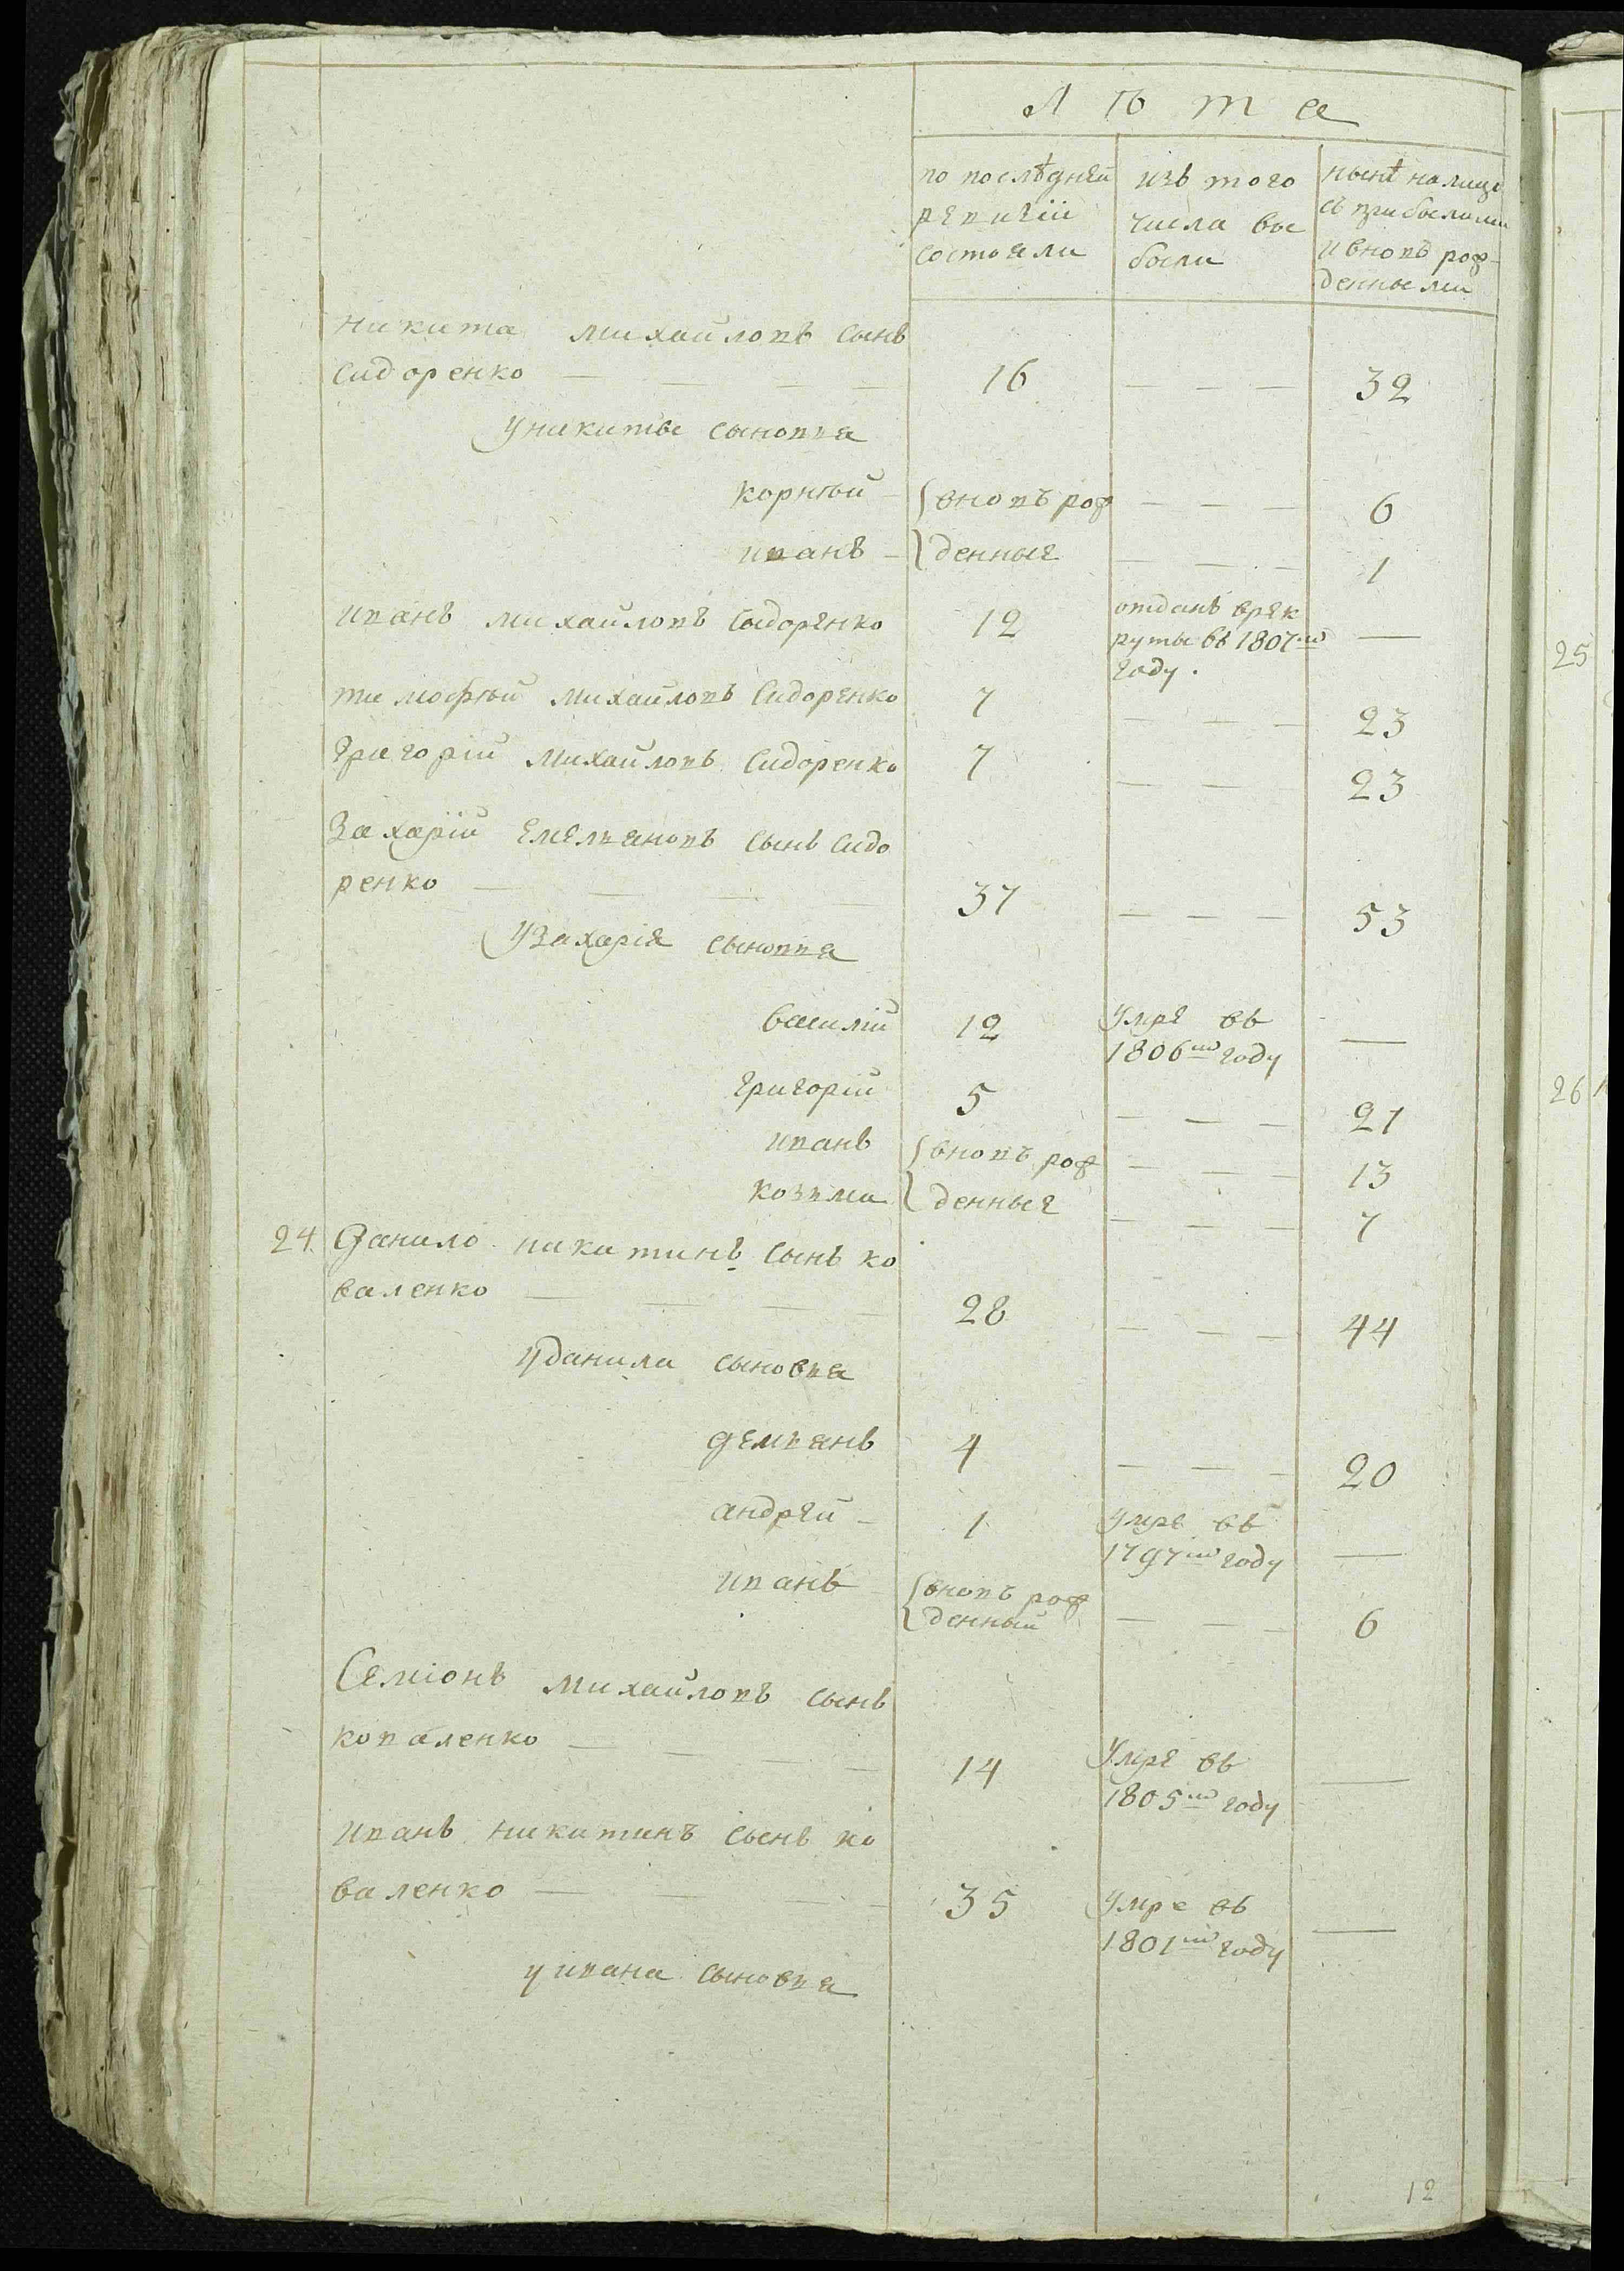 Лѣта
по послѣдней
ревизіи
состояли
изъ того
числа вы
были
нынѣ налицо
съ прибылыми
и вновь рож
денными
никита михайловъ сынъ
сидоренко — — — — 16 — — — 32
уникиты сыновья
корнѣй — вновь рож — — — 6
иванъ — денные — — — 1
иванъ михайловъ сыдоренко 12 отданъ врек
руты въ 1807мъ —
году.
тимофѣй михайловъ сидоренко 7 — — — 23
григорій михайловъ сидоренко 7 — — 23
Захарій емельяновъ сынъ сидо
ренко — — — — 37 — — — 53
Узахарія сыновья
василій 12 умре въ
1806мъ году —
григорій 5 — — — 21
иванъ вновь рож — — — 13
козьма денные — — — 7
24. данило никитинъ сынъ ко
валенко — — — — 28 — — — 44
уданила сыновья
демьянъ 4 — — — 20
андрей — 1 умре въ
1797мъ году —
иванъ вновь рож
денный — — — 6
Семіонъ михайловъ сынъ
коваленко — — — — 14 умре въ
1805мъ году —
иванъ никитинъ сынъ ко
валенко — — — — 35 умре въ
1801мъ году —
у ивана сыновья
12
25
26